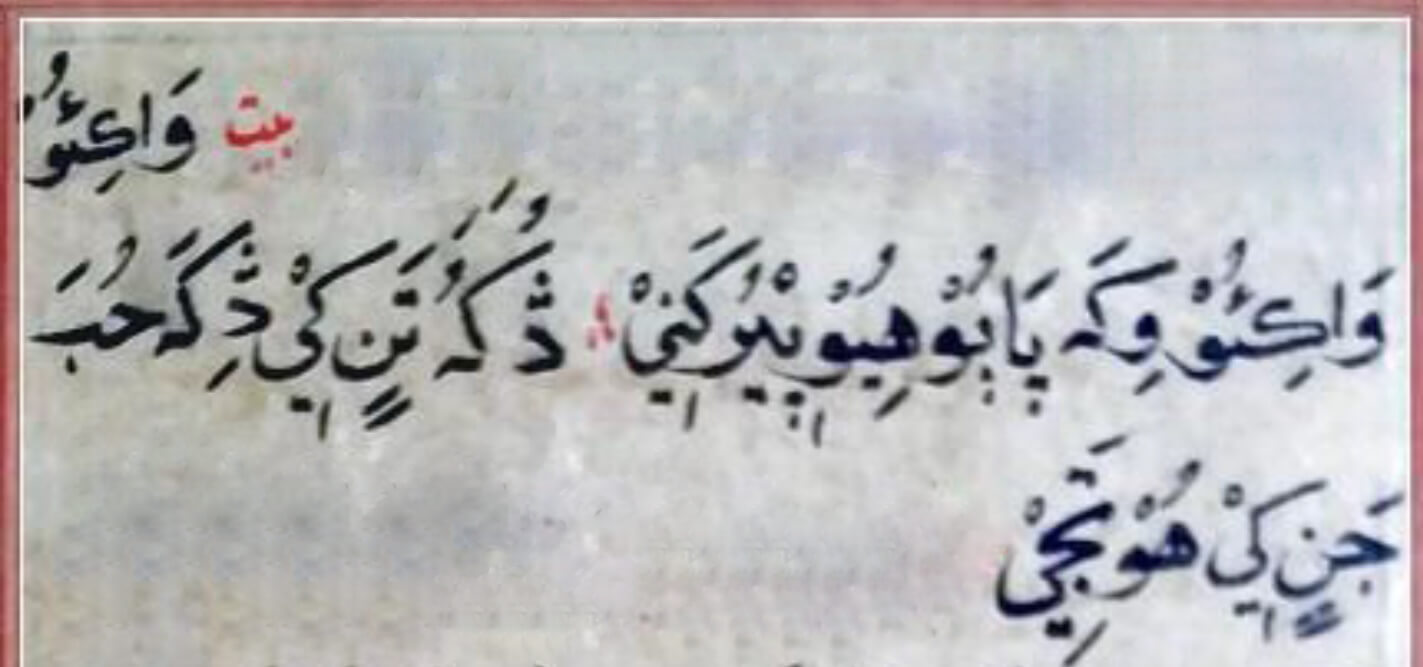 بيت وَاڪِئُوْ
وَاڪِئُوْ وِكَہ پَاٻُوْهِيُوْ پِيْرُ كَنِيْ ؛ ڎُكَہُ تَنٍ كِيْ ڎِكَہ حُبَ
جَنٍ كِيْ هُوْتَجِيْ